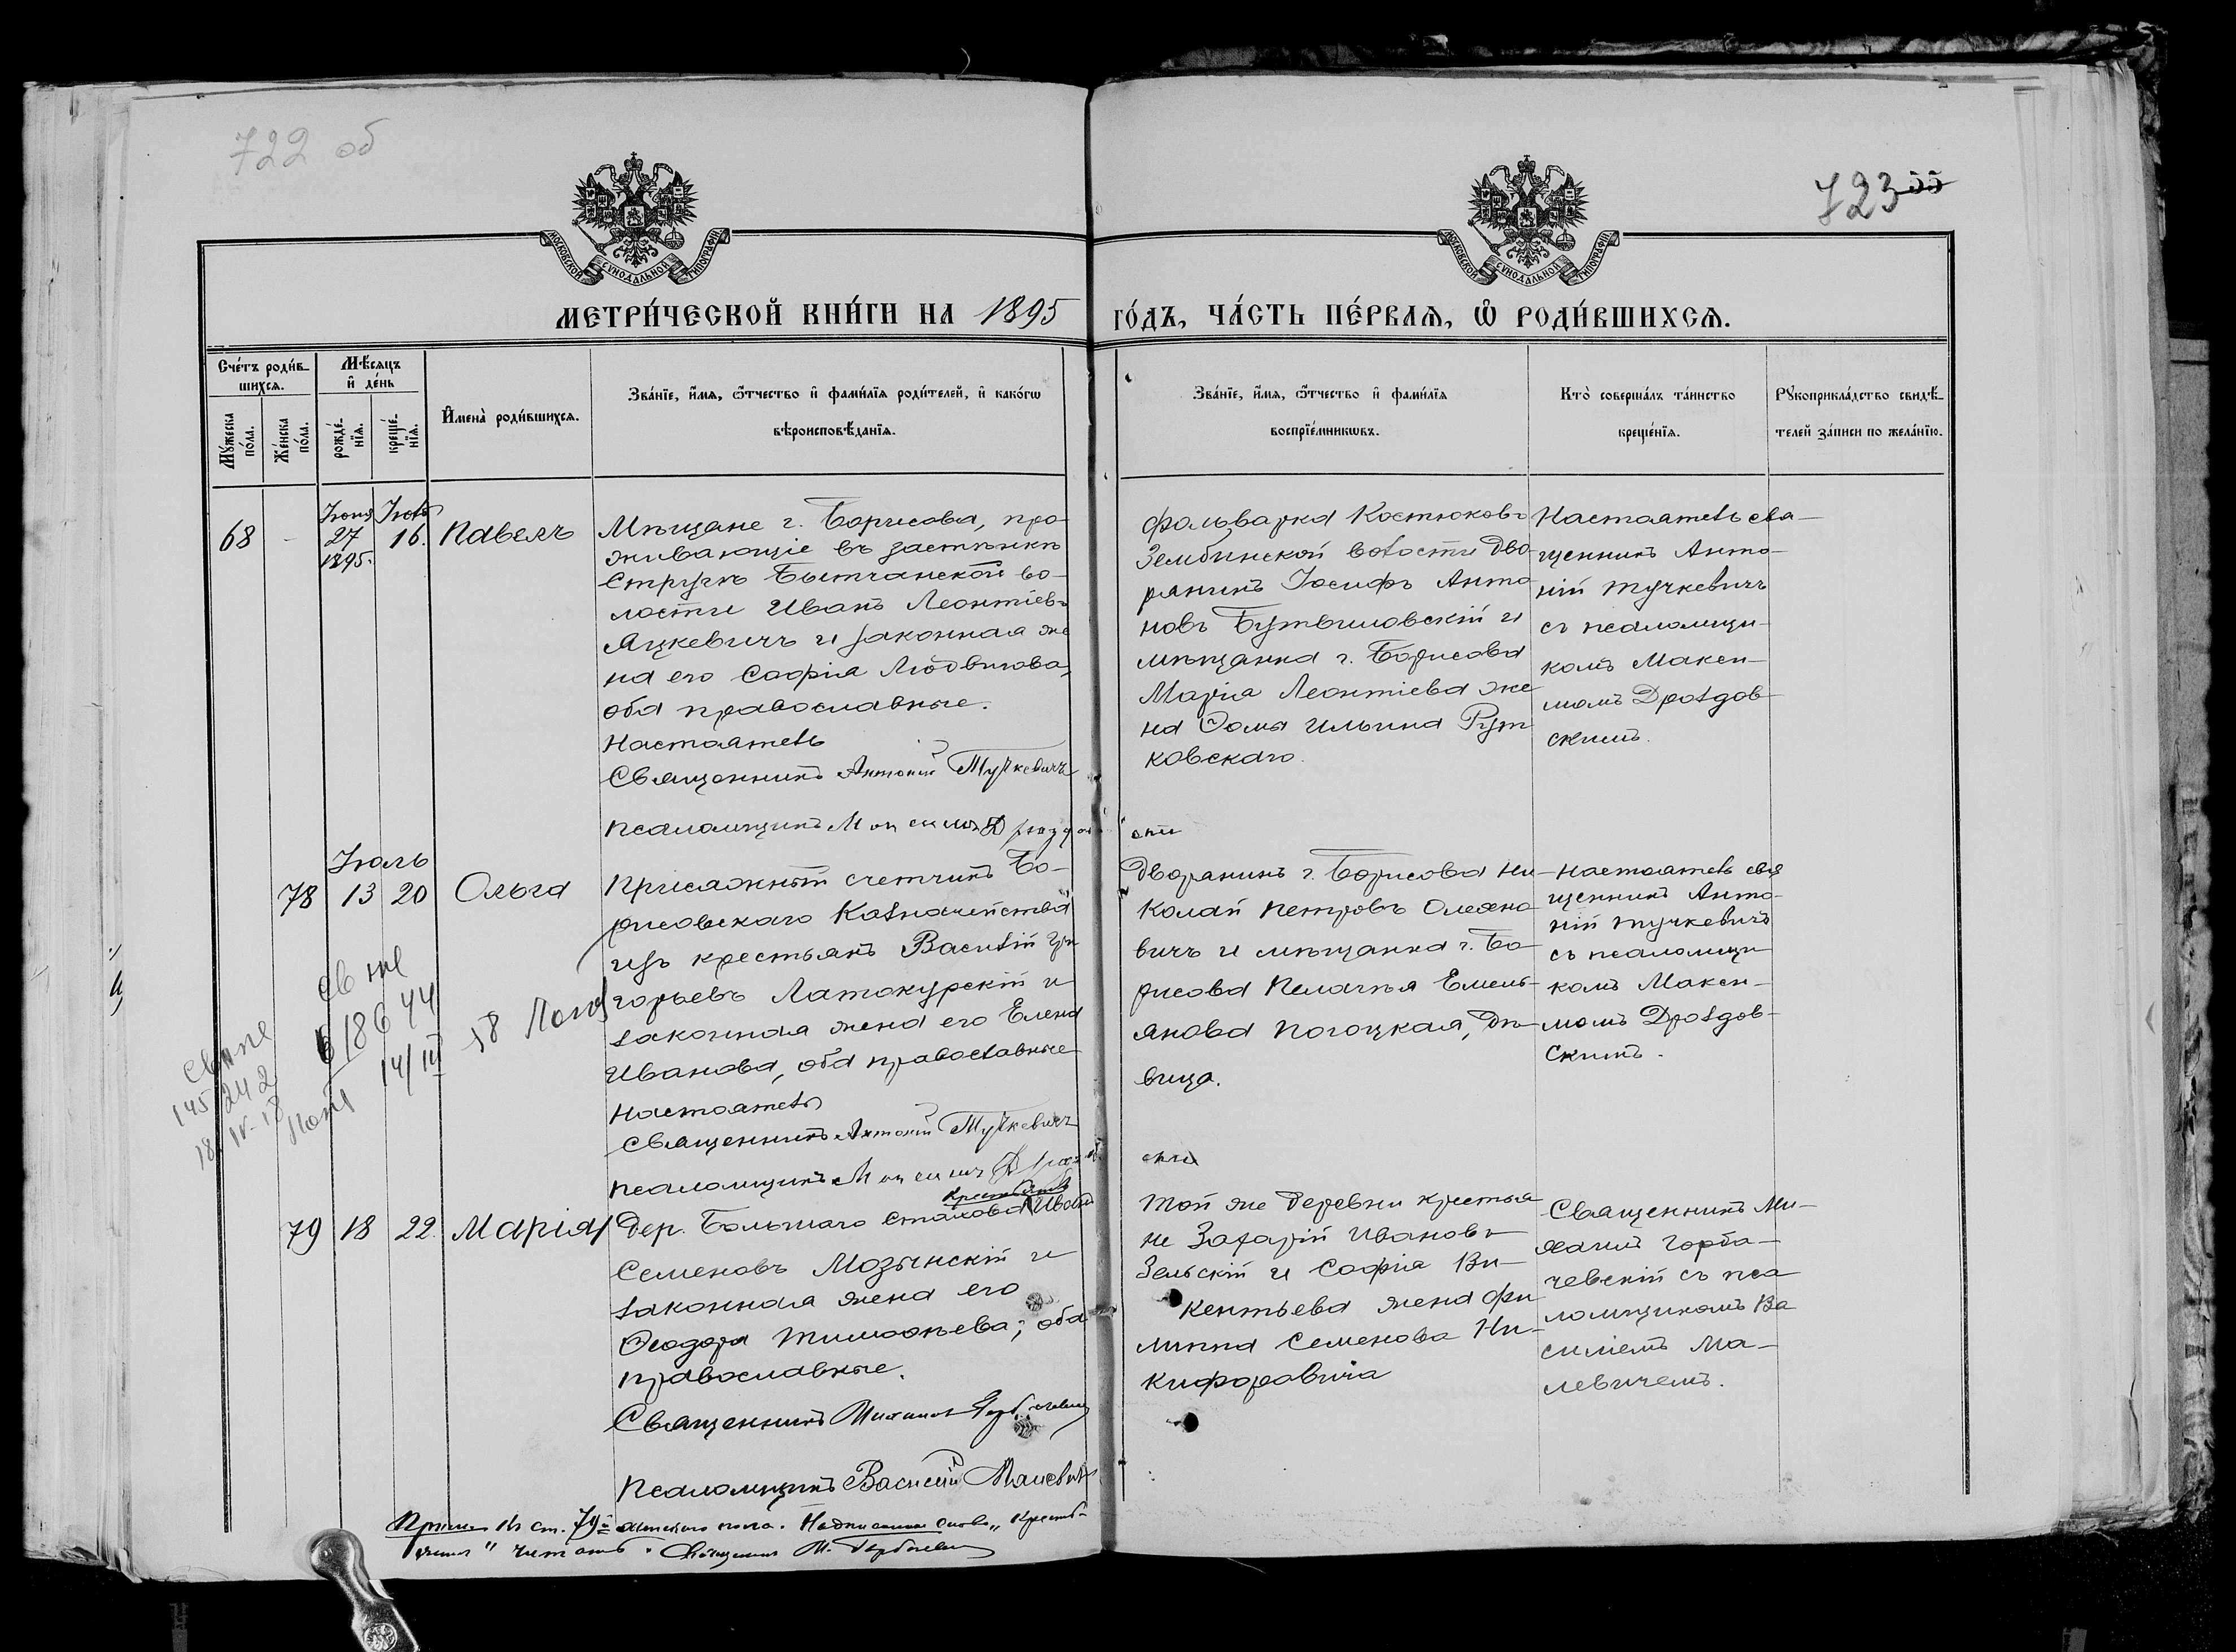 722 об
723 55
МОСКОВСКОЙ СѴНОДАЛЬНОЙ ТИПОГРАФІИ
МОСКОВСКОЙ СѴНОДАЛЬНОЙ ТИПОГРАФІИ
МЕТРИ́ЧЕСКОЙ КНИ́ГИ НА 1895 ГО́ДЪ, ЧА́СТЬ ПЕ́РВАѦ, Ѽ РОДИ́ВШИХСѦ.
Сче́тъ роди́в-
шихсѧ.
Мꙋ́жеска
по́ла.
Же́нска
по́ла.
Мѣ́сѧцъ
и҆ де́нь
рожде́-
нїѧ.
креще́-
нїѧ.
И҆мена̀ роди́вшихсѧ.
Зва́нїе, и҆́мѧ, ѻ҆́тчество и҆ фами́лїѧ роди́телей, и҆ како́гѡ
вѣроисповѣ́данїѧ.
Зва́нїе, и҆́мѧ, ѻ҆́тчество и҆ фами́лїѧ
воспрїе́мникѡвъ.
Кто̀ соверша́лъ та́инство
креще́нїѧ.
Рꙋкоприкла́дство свидѣ́-
телей за́писи по жела́нїю.
68
-
Іюня
27
1895.
Іюль
16.
Павелъ
Мѣщане г. Борисова, про-
живающіе въ застѣнкѣ
Стругѣ Бытчанской во-
лости Иванъ Леонтіевъ
Яцкевичъ и законная же
на его Софія Людвигова,
оба православные.
Настоятель
Священникъ Антоній Тучкевичъ
Псаломщикъ Максимъ Дроздов
скій
фольварка Костюковъ
Зембинской волости дво-
рянинъ Іосифъ Анто
новъ Бутвиловскій и
мѣщанка г. Борисова
Марія Леонтіева же
на Ѳомы Ильина Рут
ковскаго.
Настоятель свя-
щенникъ Анто-
ній Тучкевичъ
съ псаломщи-
комъ Макси-
момъ Дроздов-
скимъ.
Іюль
78
13
20
Ольга
Присяжный счетчикъ Бо-
рисовскаго Казначейства
изъ крестьянъ Василій Гри
горьевъ Латокурскій и
законная жена его Елена
Иванова, оба православные
Настоятель
Священникъ Антоній Тучкевичъ
Псаломщикъ Максимъ Дроздов
скій
Дворянинъ г. Борисова Ни-
колай Петровъ Олехно
вичъ и мѣщанка г. Бо
рисова Пелагія Емель-
янова Погоцкая, дѣ-
вица.
Настоятель свя
щенникъ Анто-
ній Тучкевичъ
съ псаломщи
комъ Макси-
момъ Дроздов-
скимъ.
618644
14/III
145242
18.IV-18
79
18
22.
Марія
крестьянинъ
Дер. Большаго Стахова Иванъ
Семеновъ Мозынскій и
законная жена его
Ѳеодора Тимоѳеева; оба
православные.
Священникъ Михаилъ Горбачевскій
Псаломщикъ Василій Малевичъ
Той же деревни крестья
не Захарій Ивановъ
Зельскій и Софія Ви-
кентьева жена Фи
липпа Семенова Ни-
кифоровича
Священникъ Ми-
хаилъ Горба-
чевскій съ пса
ломщикомъ Ва
силіемъ Ма-
левичемъ.
Прим. Къ ст. 79й женскаго пола. Надписанное слово „Кресть-
янинъ" читать. Священникъ М. Горбачевскій